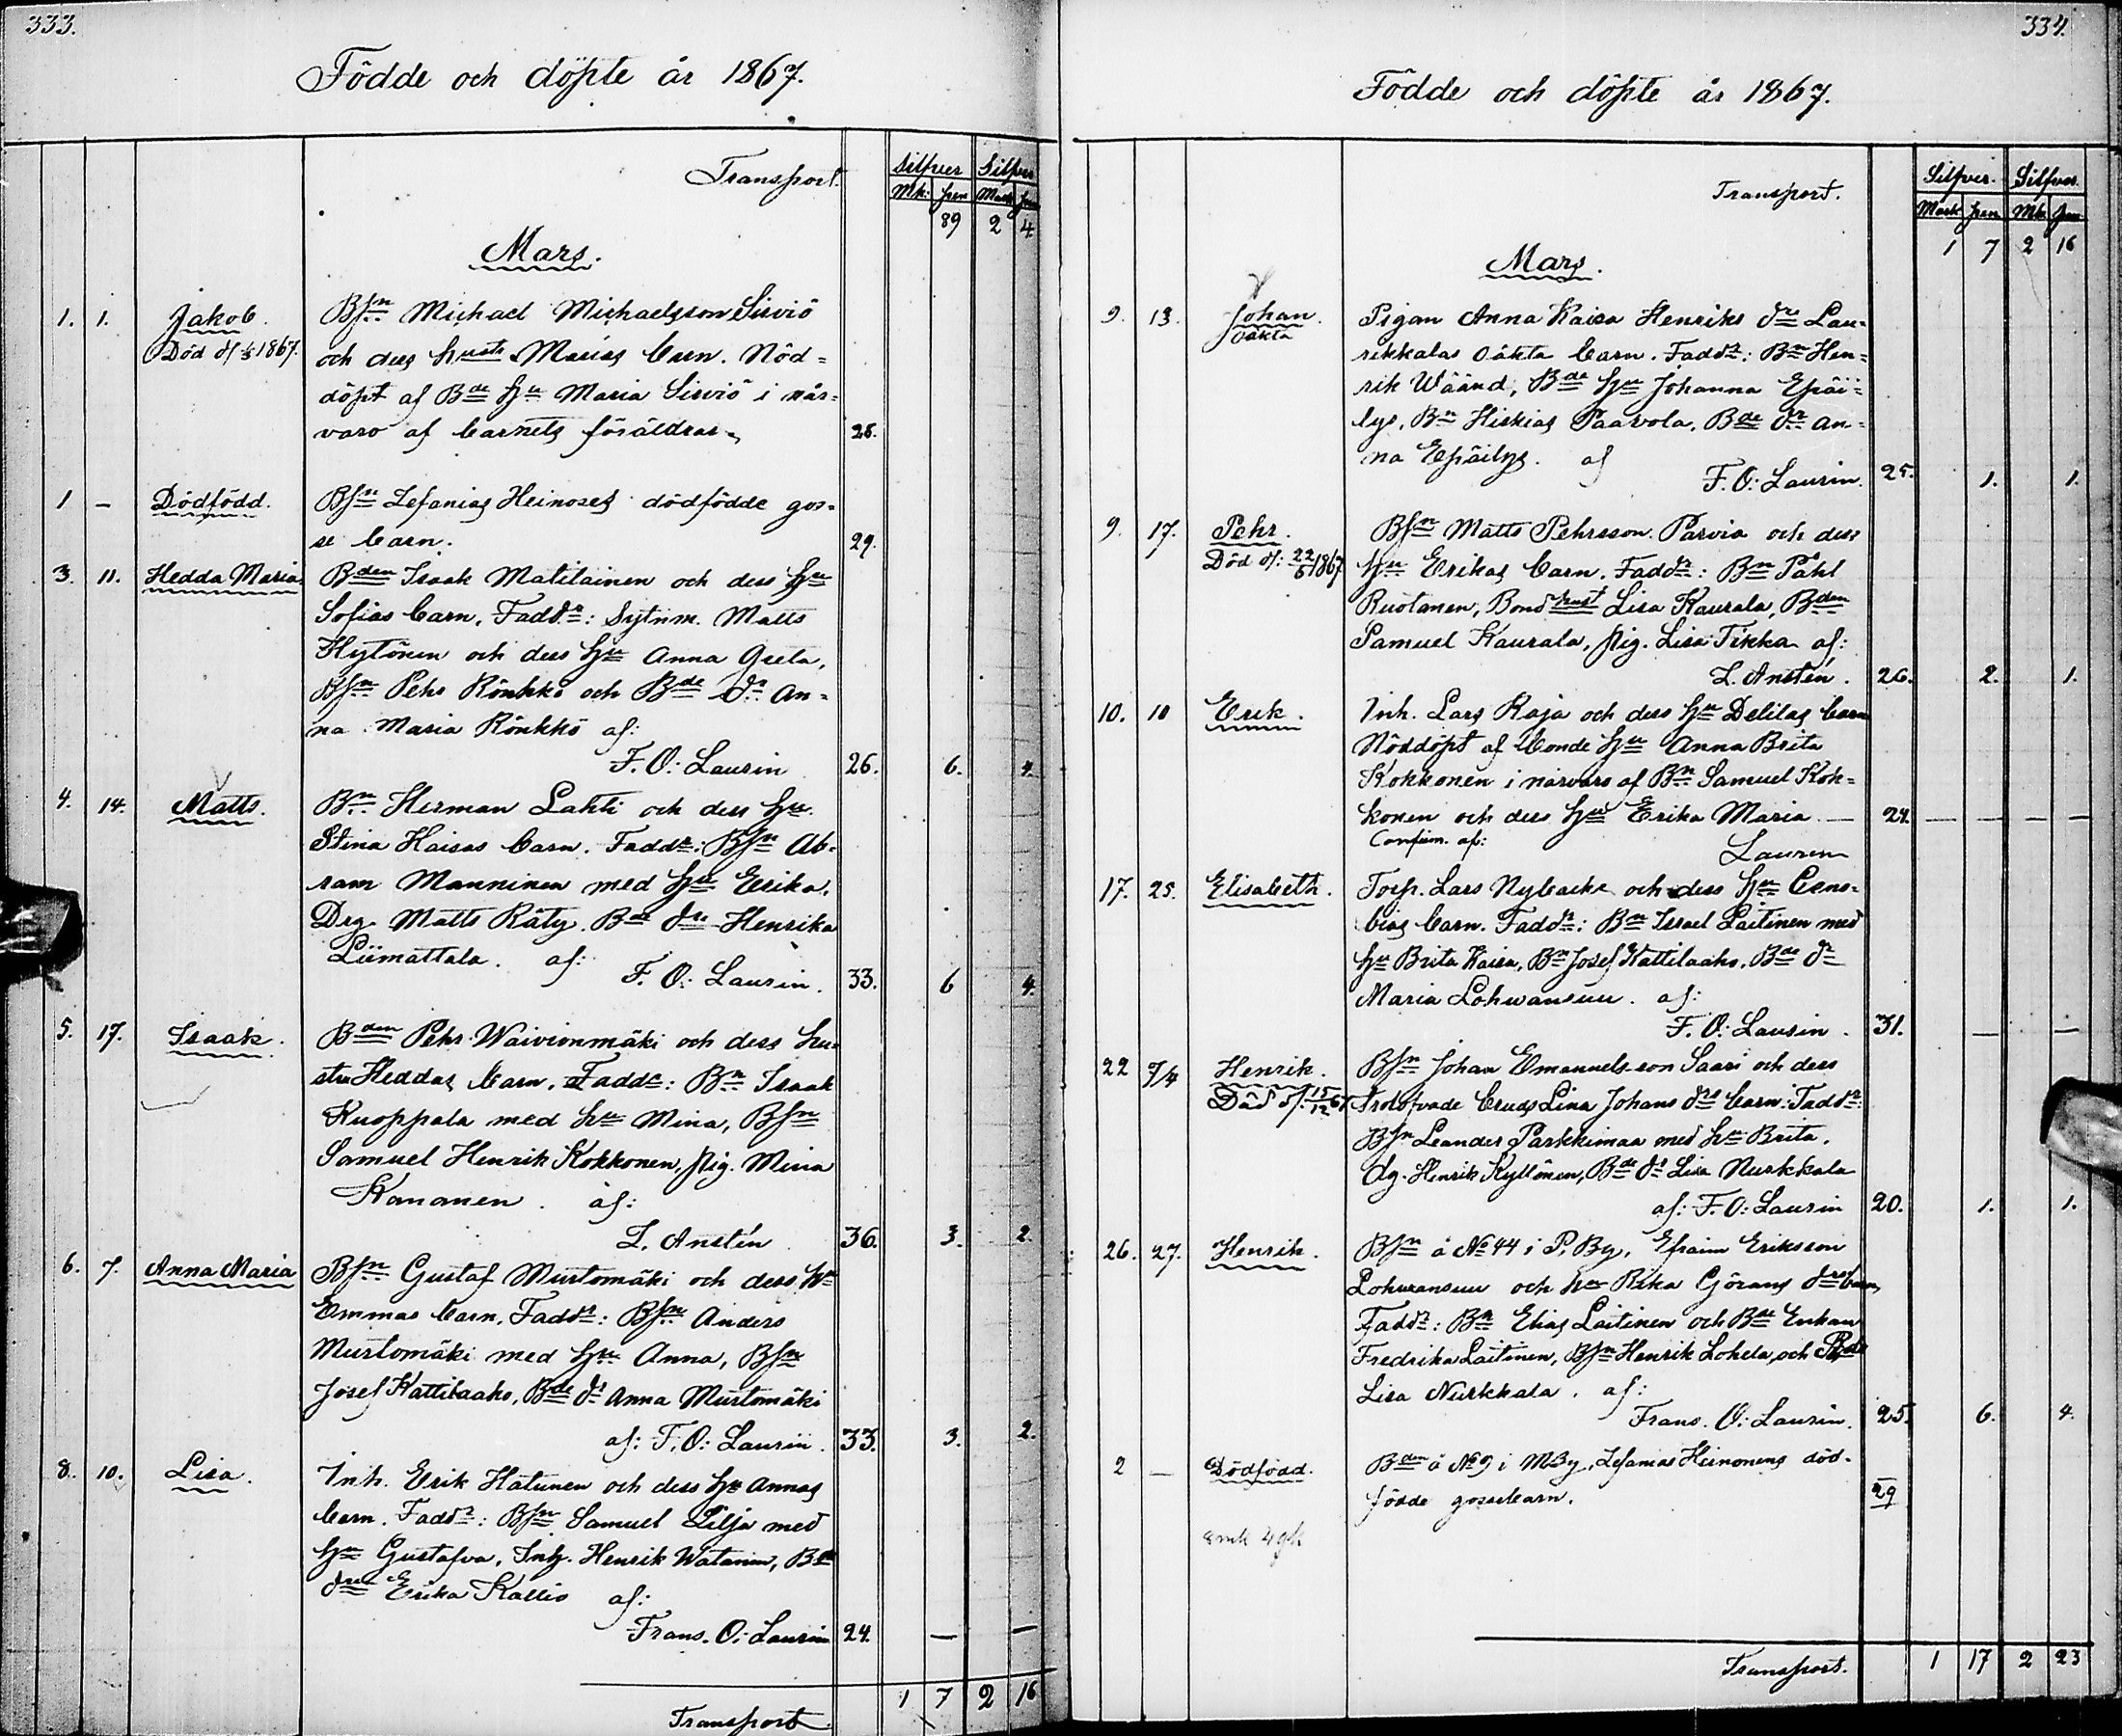 333.
Födde och döpte år 1867.
Transport.
Silfver Silfver
Mk: pen Mark pen
89 2 4.
Mars.
1. 1. Jakob. Bsn Michael Michaelsson Sirviö
Död d/ 1867. och dess hustr. Marias barn. Nöd=
döpt af Bde Hu Maria Sirviö i när=
varo af barnets föräldrar. 26.
1 – Dödfödd. Bsn Zefanias Heinoses dödfödde gos=
se barn. 29.
3. 11. Hedda Maria Bden Isaak Matilainen och dess Hu
Sofias barn. Faddr: Sytnm. Matts
Hytönen och dess Hu Anna Greta,
Bsn Pehr Rönkkö och Bde dr An=
na Maria Rönkkö af:
F. O: Laurin 26. 6. 4.
4. 14. Matts. Bn Herman Lahti och dess Hu
Stina Kaisas barn. Faddr: Bsn Ab=
ram Manninen med Hu Erika,
Drg. Matts Räty. Bde dr Henrika
Liimattala. af:
F. O: Laurin. 33. 6 4.
5. 17. Isaak. Bden Pehr Waivionmäki och dess hu=
stru Heddas barn. Faddr: Bn Isaak
Kuoppala med hu Mina, Bsn
Samuel Henrik Kokkonen, pig. Mina
Kananen. af:
L. Anstén 36. 3. 2.
6. 7. Anna Maria Bsn Gustaf Murtomäki och dess Hu
Emmas barn. Faddr: Bsn Anders
Murtomäki med Hu Anna, Bsn
Josef Kattilaaho, Bde dr Anna Murtomäki
af: F. O: Laurin. 33. 3. 2.
8. 10. Lisa. Inh. Erik Hatunen och dess Hu Annas
barn. Faddr: Bsn Samuel Lilja med
Hu Gustafva, Inh. Henrik Watanen, Bde
dr Erika Kallio af:
Frans. O: Laurin 24. — —
Transport. 1 7 2 16
334.
Födde och döpte år 1867.
Transport.
Silfver. Silfver.
Mark pen Mk pen
1 7 2 16
Mars.
9. 13. Johan. Pigan Anna Kaisa Henriks dr Lau=
oäkta rikkalas oäkta barn. Faddr: Bn Hen=
rik Wäänd, Bde Hu Johanna Epäi=
lys, Bn Hiskias Paavola, Bde dr An=
na Epäilys. af
F. O: Laurin. 25. 1. 1.
9. 17. Pehr. Bsn Matts Pehrsson Parvia och dess
Död d: 22/5 1867 Hu Erikas barn. Faddr: Bn Påhl
Ruotanen, Bond hust Lisa Kaurala, Bden
Samuel Kaurala, pig. Lisa Tikka af:
L. Anstén. 26. 2. 1.
10. 10 Erik. Inh. Lars Raja och dess Hu Delilas barn
Nöddöpt af bonde Hu Anna Brita
Kokkonen i närvaro af Bn Samuel Kok=
konen och dess Hu Erika Maria — 24. — — — —
Confirm. af:
Laurin
17. 25. Elisabeth. Torp. Lars Nybacka och dess Hu Ceno=
bias barn. Faddr: Bn Israel Laitinen med
Hu Brita Kaisa, Bn Josef Kattilaaho, Bde dr
Maria Lohwansuu. af:
F. O: Laurin. 31. — —
22 7/4 Henrik. Bsn Johan Emanuelsson Saari och dess
Död d: 15/12 67. trolofvade bruds Lina Johans drs barn: Faddr:
Bsn Leander Parkkimaa med hu Brita,
dg. Henrik Kyllönen, Bde dr Lisa Nurkkala
af: F. O: Laurin 20. 1. 1.
26. 27. Henrik. Bsn å No 44 i P. By, Efraim Eriksson
Lohwansuu och hu Rika Görans drs barn,
Faddr: Bn Elias Laitinen och Bde Enkan
Fredrika Laitinen, Bsn Henrik Lohela, och Bde
Lisa Nurkkala. af:
Frans. O: Laurin. 25. 6. 4.
2 — Dödfödd. Bden å No 9 i MBy, Zefanias Heinonens död=
födde gossebarn. 29
Transport. 1 17 2 23